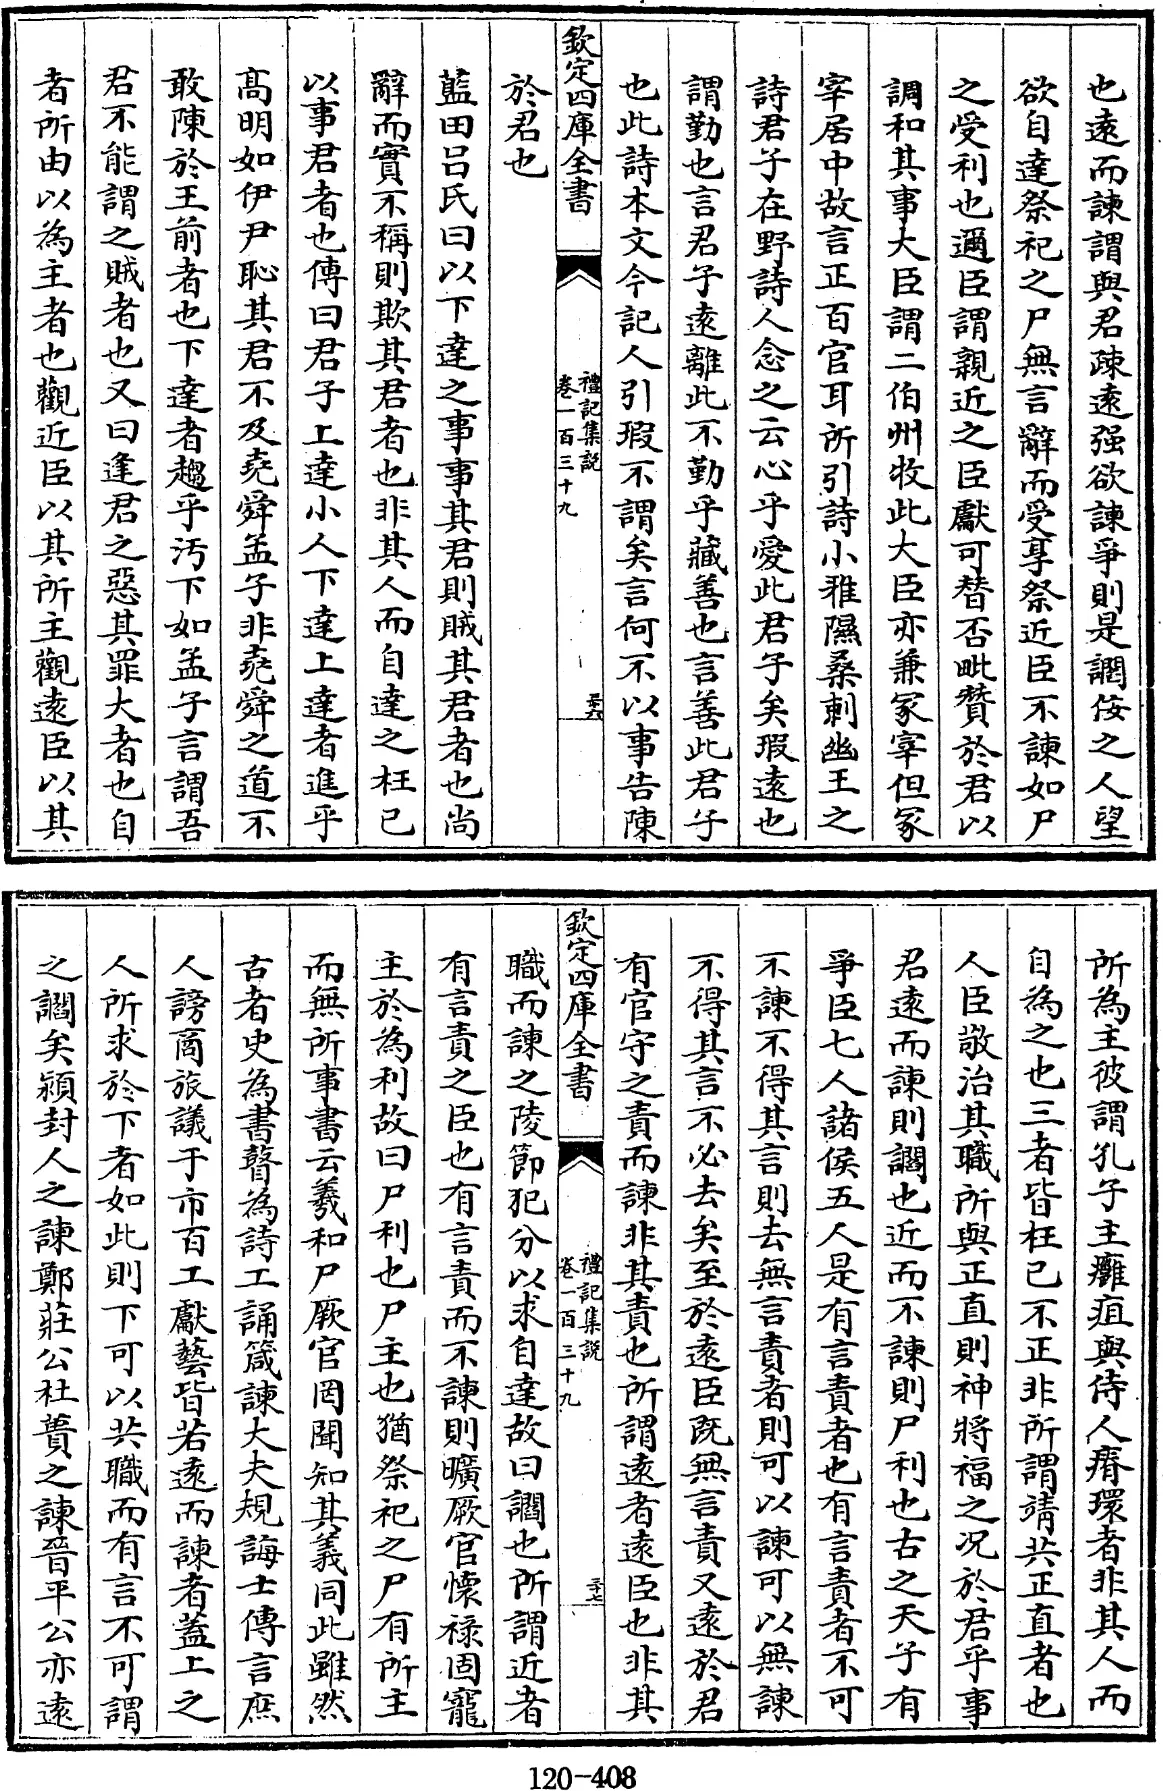 也遠而諫謂與君疎遠强欲諫爭則是讇佞之人望
欲自達祭祀之尸無言辭而受享祭近臣不諫如尸
之受利也邇臣謂親近之臣獻可替否毗贊於君以
調和其事大臣謂二伯州牧此大臣亦兼冢宰但冢
宰居中故言正百官耳所引詩小雅隰桑刺幽王之
詩君子在野詩人念之云心乎愛此君子矣瑕遠也
謂勤也言君子遠離此不勤乎藏善也言善此君子
也此詩本文今記人引瑕不謂矣言何不以事告陳
欽定四庫全書
禮記集說
卷一百三十九
三十六
於君也
藍田呂氏曰以下達之事事其君則賊其君者也尚
辭而實不稱則欺其君者也非其人而自達之枉已
以事君者也傳曰君子上達小人下達上達者進乎
高明如伊尹恥其君不及堯舜孟子非堯舜之道不
敢陳於王前者也下達者趨乎汚下如孟子言謂吾
君不能謂之賊者也又曰逢君之惡其罪大者也自
者所由以為主者也觀近臣以其所主觀遠臣以其
所為主彼謂孔子主癰疽與侍人瘠環者非其人而
自為之也三者皆枉已不正非所謂靖共正直者也
人臣敬治其職所與正直則神將福之况於君乎事
君遠而諫則讇也近而不諫則尸利也古之天子有
爭臣七人諸侯五人是有言責者也有言責者不可
不諫不得其言則去無言責者則可以諫可以無諫
不得其言不必去矣至於遠臣既無言責又遠於君
有官守之責而諫非其責也所謂遠者遠臣也非其
欽定四庫全書
禮記集說
卷一百三十九
三十七
職而諫之陵節犯分以求自達故曰讇也所謂近者
有言責之臣也有言責而不諫則曠厥官懷祿固寵
主於為利故曰尸利也尸主也猶祭祀之尸有所主
而無所事書云羲和尸厥官罔聞知其義同此雖然
古者史為書瞽為詩工誦箴諫大夫規誨士傳言庶
人謗商旅議于市百工獻藝皆若遠而諫者蓋上之
人所求於下者如此則下可以共職而有言不可謂
之讇矣潁封人之諫鄭莊公杜蕢之諫晉平公亦遠
120-408